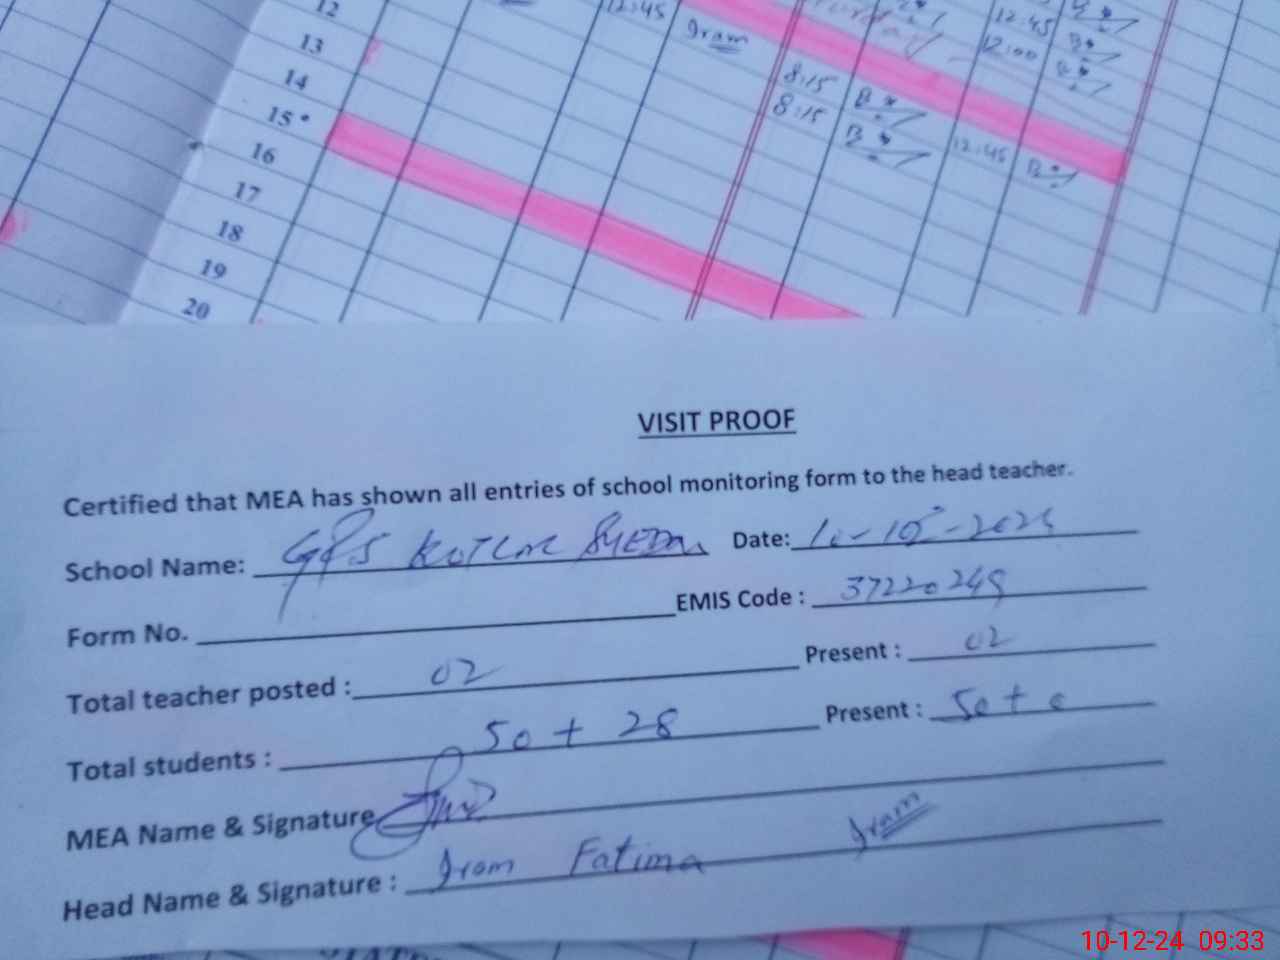 12
13
14
15
16
17
18
19
20
12:45 Iram
12:45
12:00
8:15
8:15 12:45
VISIT PROOF
Certified that MEA has shown all entries of school monitoring form to the head teacher.
School Name: GPS Date:
Form No. EMIS Code : 37220249
Total teacher posted : 02 Present : 02
Total students : 50 + 28 Present : 50 + 0
MEA Name & Signature
Head Name & Signature : Iram Fatima Iram
10-12-24 09:33